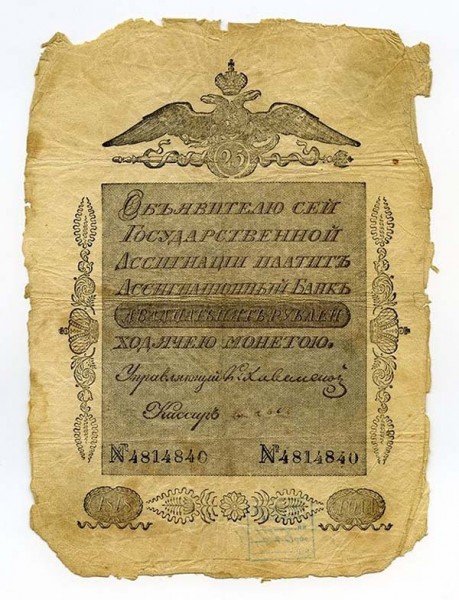 25
Объявителю сей
Государственной
Ассигнации платитъ
Ассигнационный Банкъ
двадцать пять рублей
ходячею монетою.
Управляющий
Кассиръ
№4814840 №4814840
1818 года